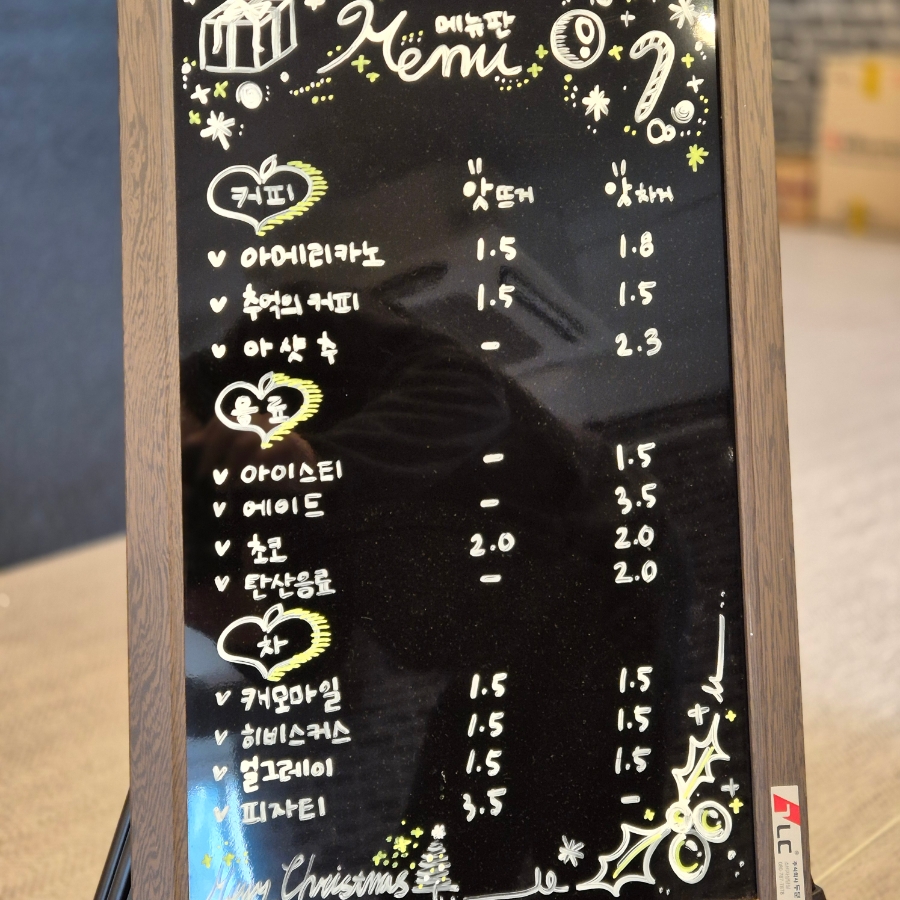 메뉴판
Menu
커피 앗뜨거 앗차거
아메리카노 1.5 1.8
추억의 커피 1.5 1.5
아샷추 - 2.3
음료
아이스티 - 1.5
에이드 - 3.5
초코 2.0 2.0
탄산음료 - 2.0
차
캐모마일 1.5 1.5
히비스커스 1.5 1.5
얼그레이 1.5 1.5
피자티 3.5 -
Merry Christmas
LC